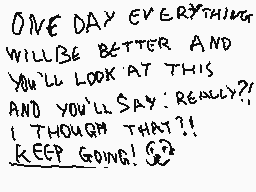 ONE DAY EVERYTHING
WILL BE BETTER AND
YOU'LL LOOK AT THIS
AND YOU'LL SAY: REALLY?!
I THOUGH THAT?!
KEEP GOING!